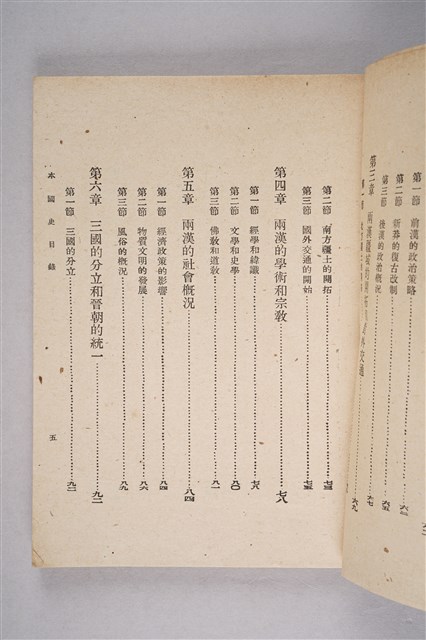 第一節 前漢的政治策略
第二節 新莽的復古改制
第三節 後漢的政治概況
第三章 兩漢
第二節 南方疆土的開拓
第三節 國外交通的開始
第四章 兩漢的學術和宗教 七八
第一節 經學和緯讖 七八
第二節 文學和史學 八〇
第三節 佛教和道教 八一
第五章 兩漢的社會概況 八四
第一節 經濟政策的影響 八四
第二節 物質文明的發展 八六
第三節 風俗的概況 八九
第六章 三國的分立和晉朝的統一 九二
第一節 三國的分立 九二
本國史目錄
五